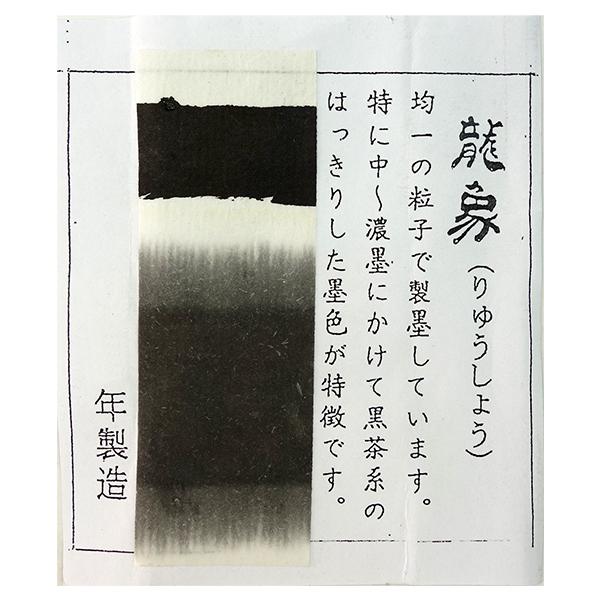 龍象（りゅうしょう）
均一の粒子で製墨しています。
特に中～濃墨にかけて黒茶系の
はっきりした墨色が特徴です。
年製造